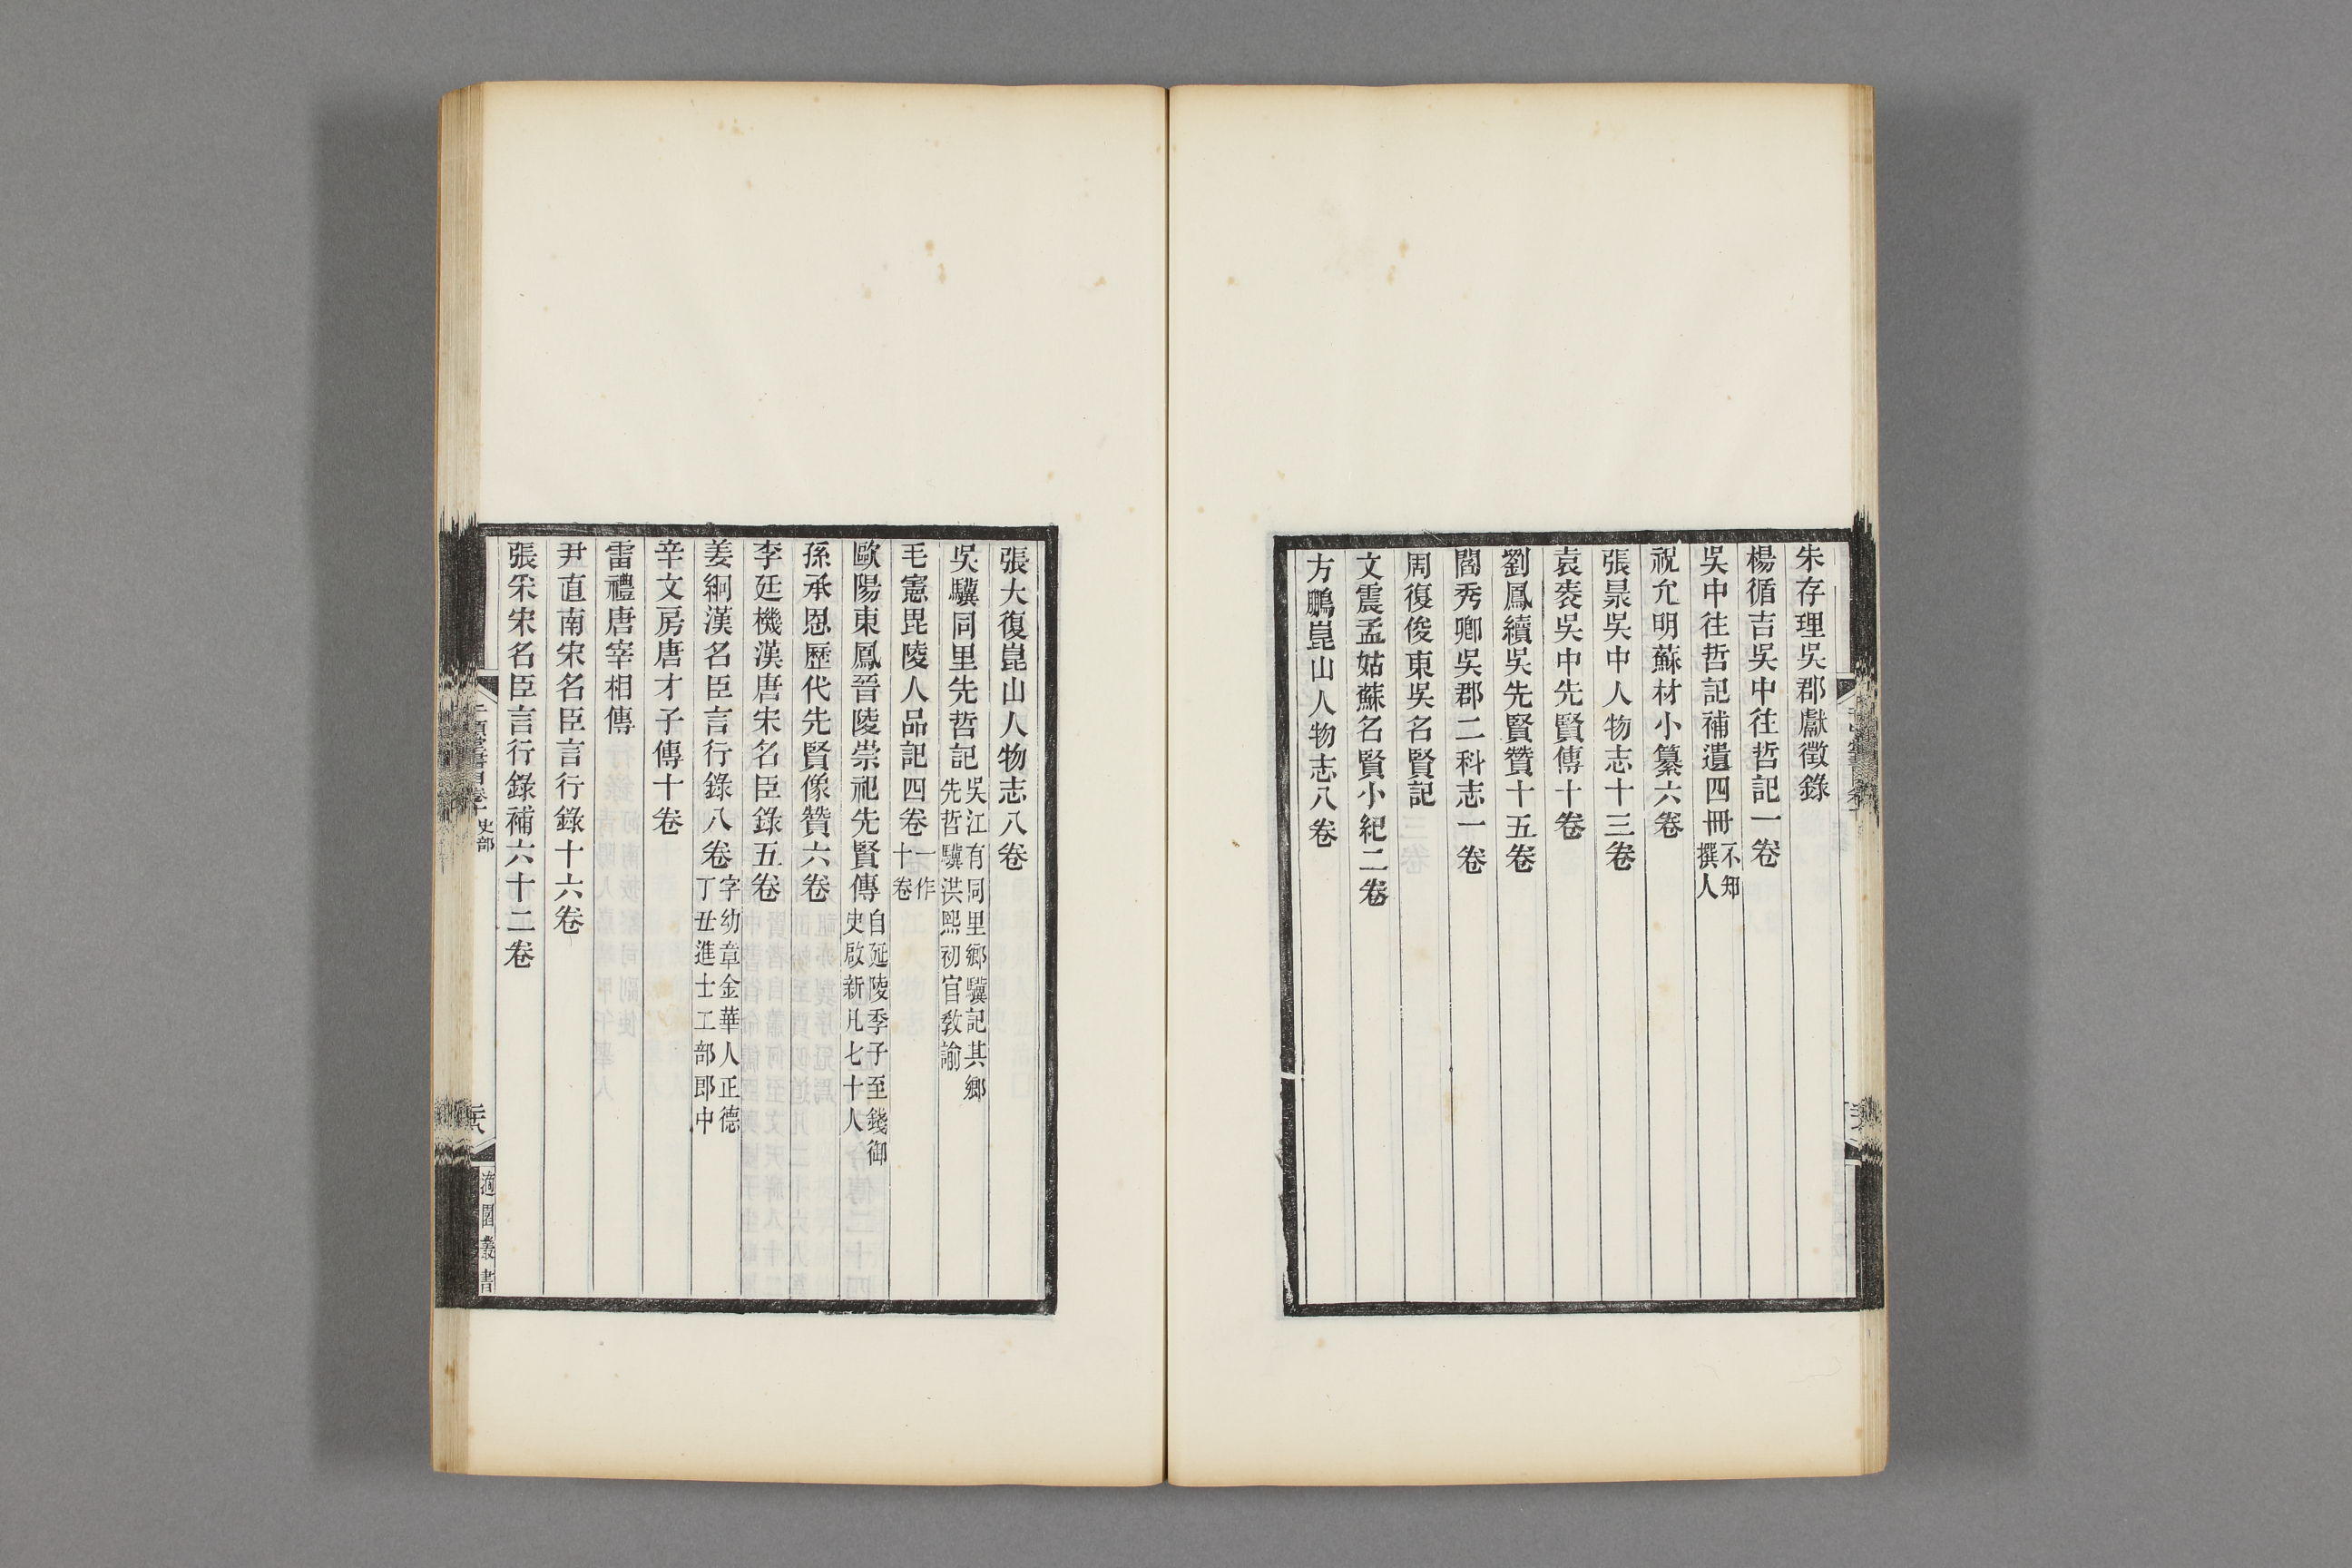 朱存理吳郡獻徵錄
楊循吉吳中往哲記一卷
吳中往哲記補遺四冊不知撰人
祝允明蘇材小纂六卷
張㫤吳中人物志十三卷
袁袠吳中先賢傳十卷
劉鳳續吳先賢贊十五卷
閻秀卿吳郡二科志一卷
周復俊東吳名賢記
文震孟姑蘇名賢小紀二卷
方鵬崑山人物志八卷
張大復崑山人物志八卷
吳驥同里先哲記吳江有同里鄉驥記其鄉先哲驥洪熙初官敎諭
毛憲毘陵人品記四卷一作十卷
歐陽東鳳晉陵崇祀先賢傳自延陵季子至錢御史啟新凡七十人
孫承恩歷代先賢像贊六卷
李廷機漢唐宋名臣錄五卷
姜綱漢名臣言行錄八卷字幼章金華人正德丁丑進士工部郎中
辛文房唐才子傳十卷
雷禮唐宰相傳
尹直南宋名臣言行錄十六卷
張采宋名臣言行錄補六十二卷
千頃堂書目卷十 史部
二十八
適園叢書